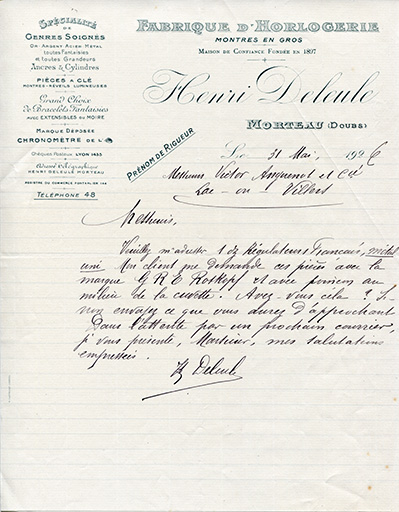 SPÉCIALITÉ
DE
GENRES SOIGNÉS
OR-ARGENT-ACIER-MÉTAL
toutes Fantaisies
et toutes Grandeurs
Ancres & Cylindres
PIÈCES A CLÉ
MONTRES-RÉVEILS LUMINEUSES
Grand Choix
de Bracelets Fantaisies
AVEC EXTENSIBLES OU MOIRE
MARQUE DÉPOSÉE
CHRONOMÈTRE DE L'
Chèques Postaux LYON 1453
Adresse Télégraphique
HENRI DELEULE MORTEAU
REGISTRE DU COMMERCE PONTARLIER
TÉLÉPHONE 48
FABRIQUE D'HORLOGERIE
MONTRES EN GROS
MAISON DE CONFIANCE FONDÉE EN 1897
Henri Deleule
MORTEAU (DOUBS)
PRÉNOM DE RIGUEUR
Le 31 Mai, 1926
Messieurs Victor Anguenot et Cie
Lac - ou - Villers
Messieurs,
Veuillez m'adresser 1 dz Régulateurs Francais, métal
uni. Mon client me demande ces pièces avec la
marque G.R.E Roskopf et avec poinçon au
milieu de la cuvette. Avez-vous cela ? Si-
non envoyez ce que vous aurez d'approchant
Dans l'attente par un prochain courrier,
je vous présente, Messieurs, mes salutations
empressées.
H Deleule